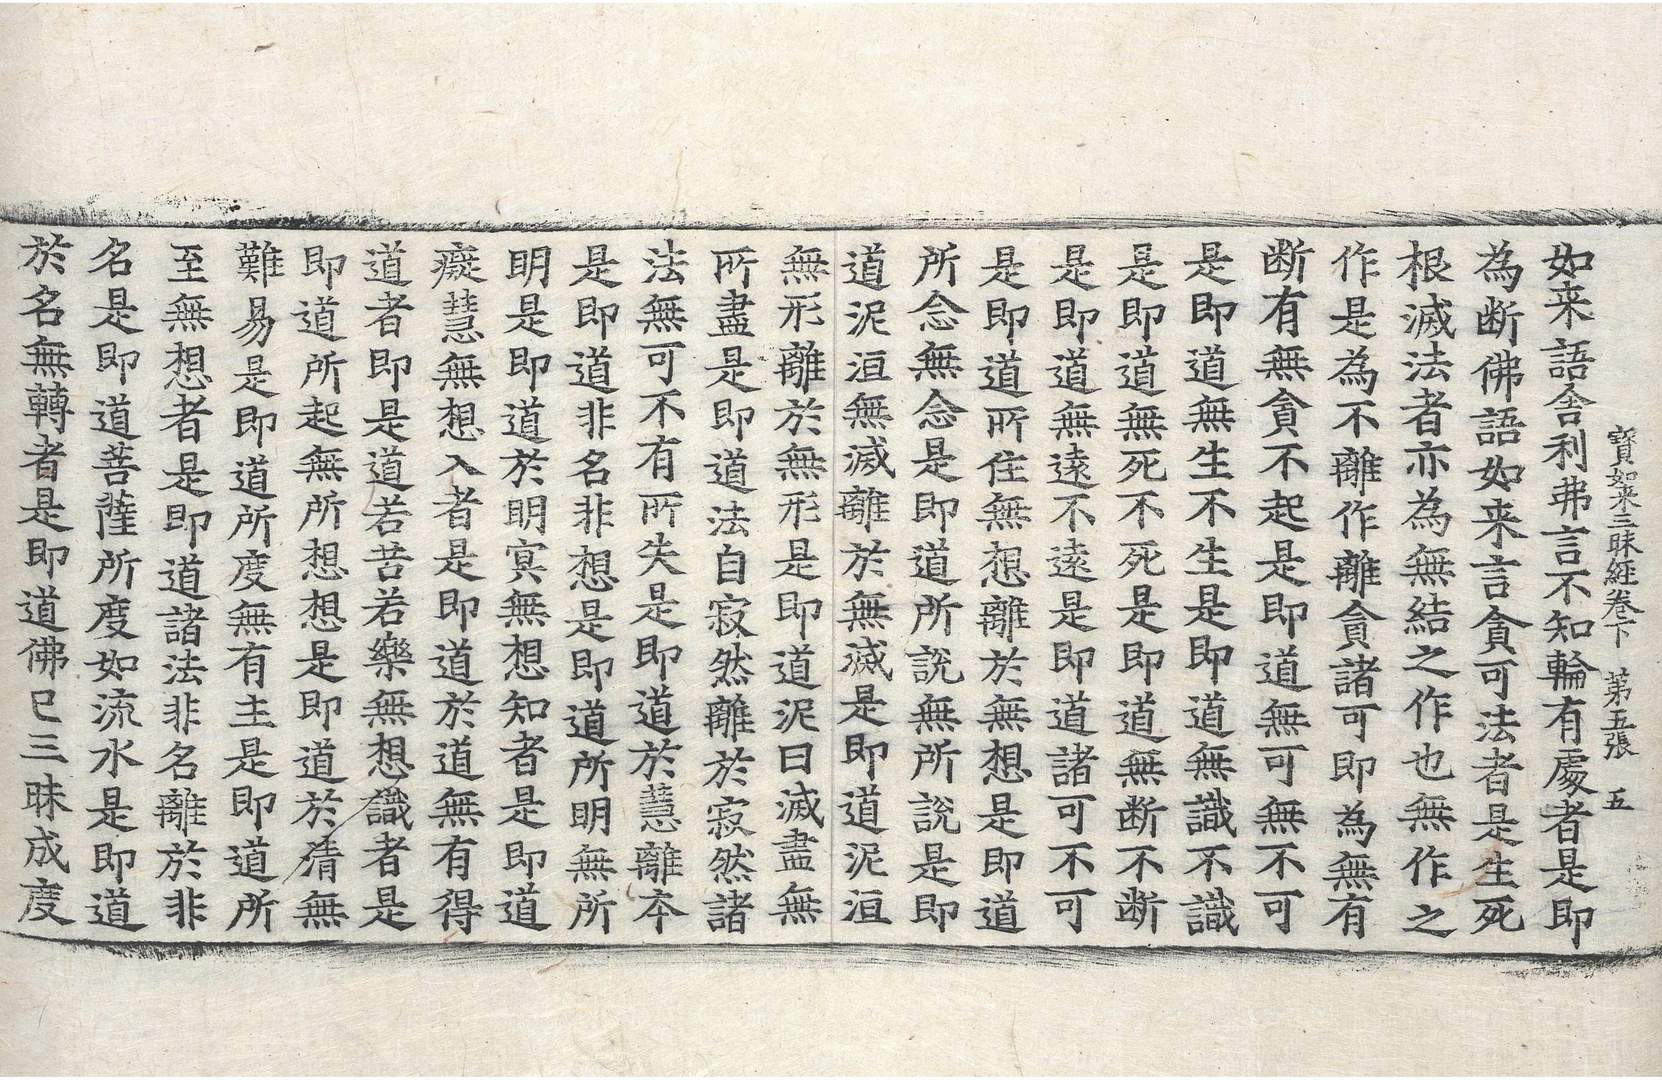 寶如来三昧經卷下　第五張　五
如来語舎利弗言不知輪有處者是即
為断佛語如来言貪可法者是生死
根滅法者亦為無結之作也無作之
作是為不離作離貪諸可即為無有
断有無貪不起是即道無可無不可
是即道無生不生是即道無識不識
是即道無死不死是即道無断不断
是即道無遠不遠是即道諸可不可
是即道所住無想離於無想是即道
所念無念是即道所說無所說是即
道泥洹無滅離於無滅是即道泥洹
無形離於無形是即道泥曰滅盡無
所盡是即道法自寂然離於寂然諸
法無可不有所失是即道於慧離本
是即道非名非想是即道所明無所
明是即道於明冥無想知者是即道
癡慧無想入者是即道於道無有得
道者即是道若苦若樂無想識者是
即道所起無所想想是即道於猗無
難易是即道所度無有主是即道所
至無想者是即道諸法非名離於非
名是即道菩薩所度如流水是即道
於名無轉者是即道佛已三昧成度